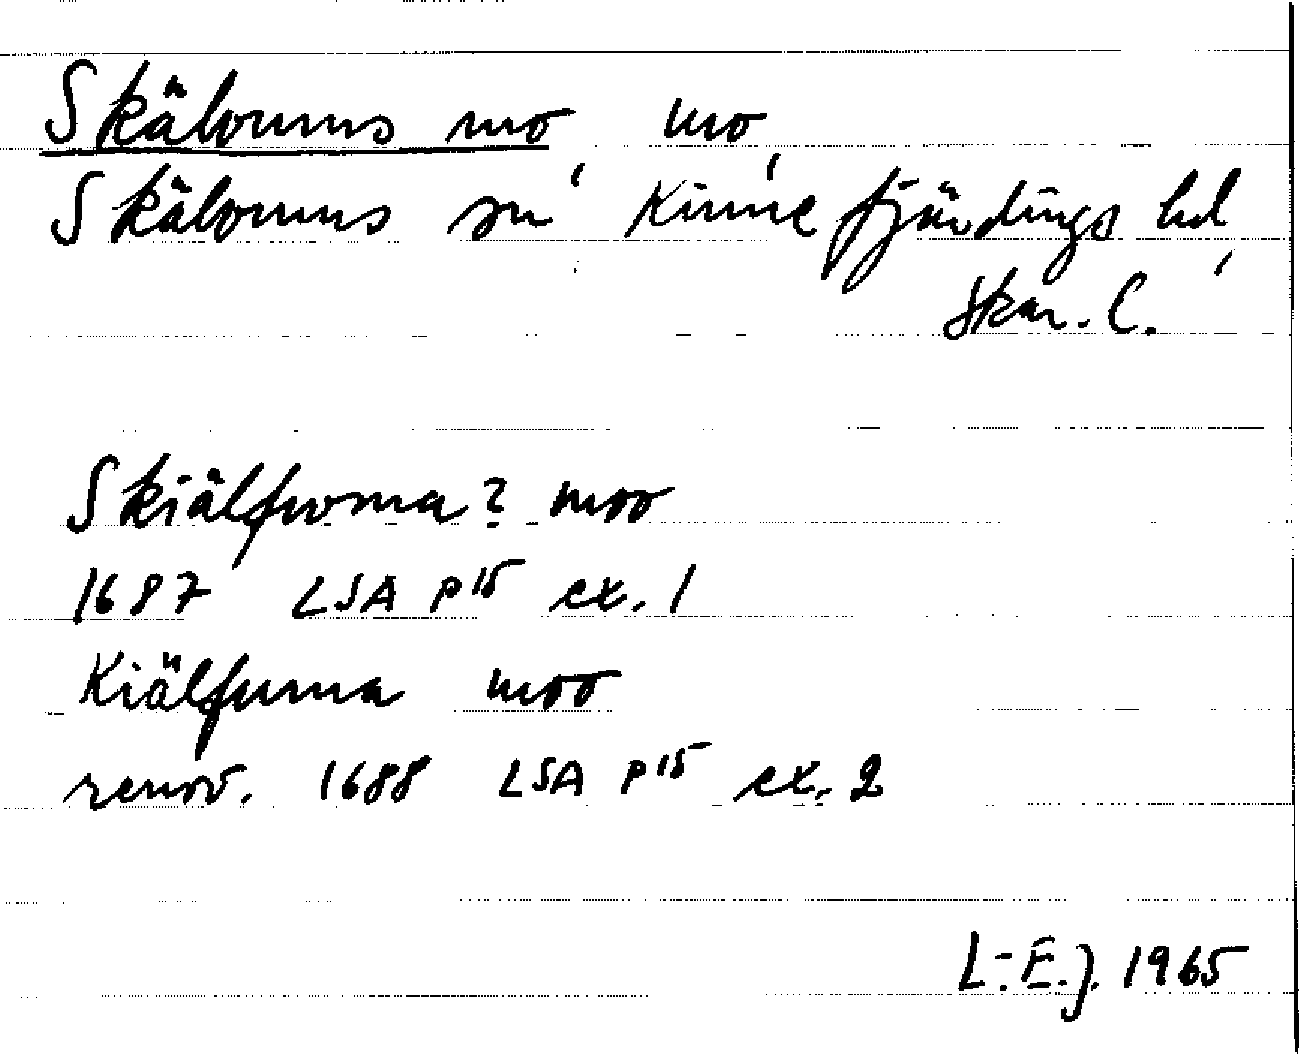 Skälvums mo, mo,
Skälvums sn, Kinne fjärdings hd,
Skar. l.
Skiälfwma? moo
1687 LSA P15 ex. 1
Kiälfuma moo
renov. 1688 LSA P15 ex. 2
L-E.J. 1965